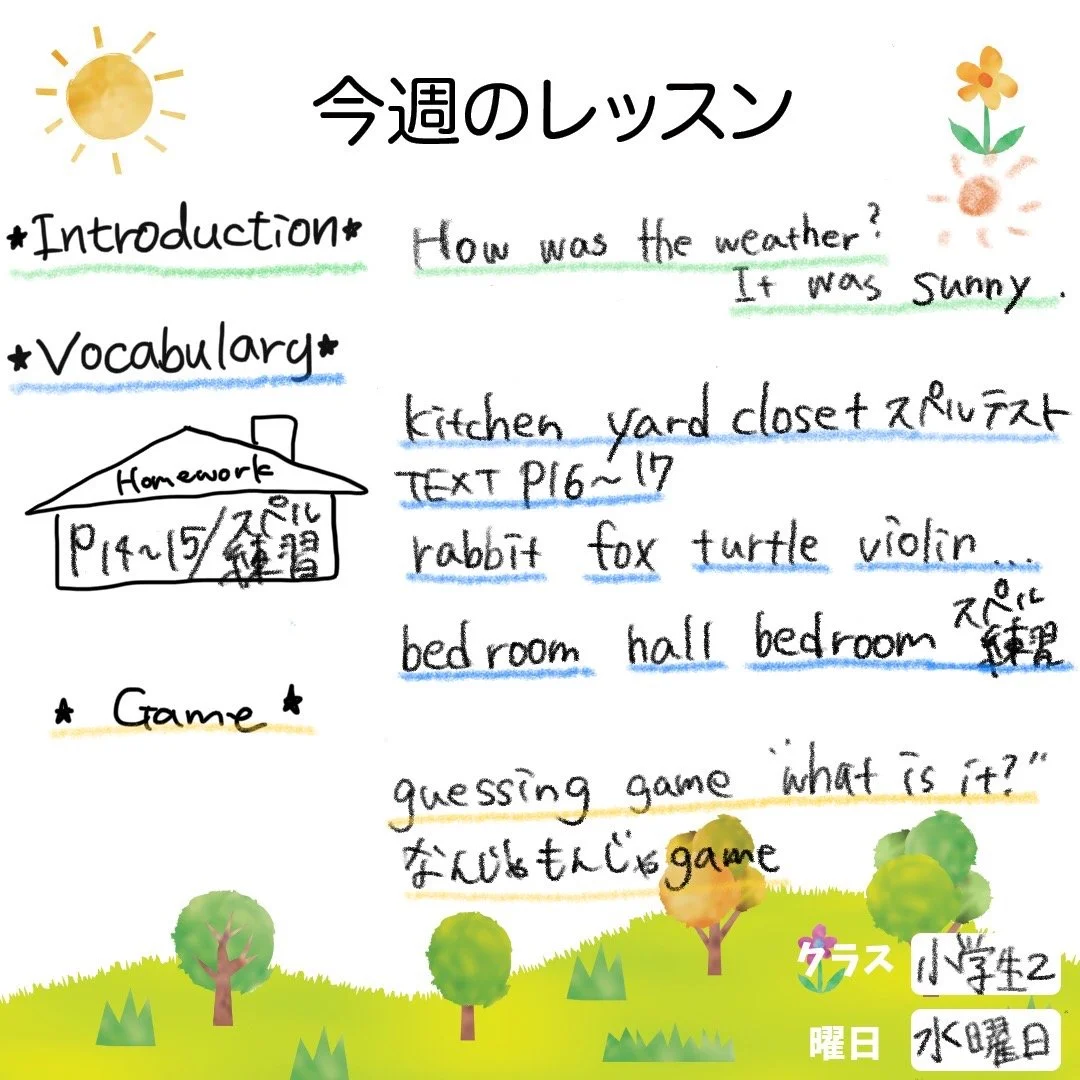 今週のレッスン
*Introduction*
How was the weather?
It was sunny.
*Vocabulary*
kitchen yard closet スペルテスト
TEXT P16~17
rabbit fox turtle violin...
bedroom hall bedroom スペル練習
Homework
P14~15/スペル練習
* Game *
guessing game "what is it?"
なんじゃもんじゃgame
クラス 小学生2
曜日 水曜日